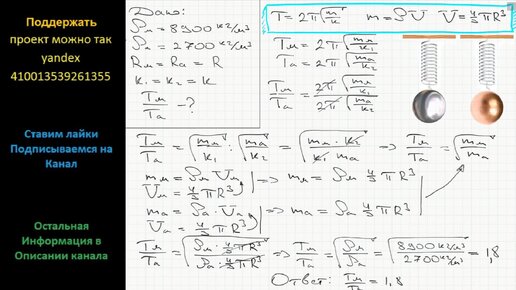 Поддержать
проект можно так
yandex
410013539261355
Ставим лайки
Подписываемся на
Канал
Остальная
Информация в
Описании канала
Дано:
ρм = 8900 кг/м³
ρа = 2700 кг/м³
Rм = Rа = R
k₁ = k₂ = k
Tм/Tа - ?
T = 2π√(m/k) m = ρV V = 4/3 πR³
Tм = 2π√(mм/k₁)
Tа = 2π√(mа/k₂)
Tм/Tа = 2π√(mм/k₁) / 2π√(mа/k₂)
Tм/Tа = √(mм/k₁) : √(mа/k₂) = √(mм·k₂/k₁·mа) => Tм/Tа = √(mм/mа)
mм = ρм Vм => mм = ρм 4/3 πR³
Vм = 4/3 πR³
mа = ρа·Vа => mа = ρа 4/3 πR³
Vа = 4/3 πR³
Tм/Tа = √(ρм·4/3 πR³/ρа·4/3 πR³) => Tм/Tа = √(ρм/ρа) = √(8900 кг/м³/2700 кг/м³) = 1,8
Ответ: Tм/Tа = 1,8